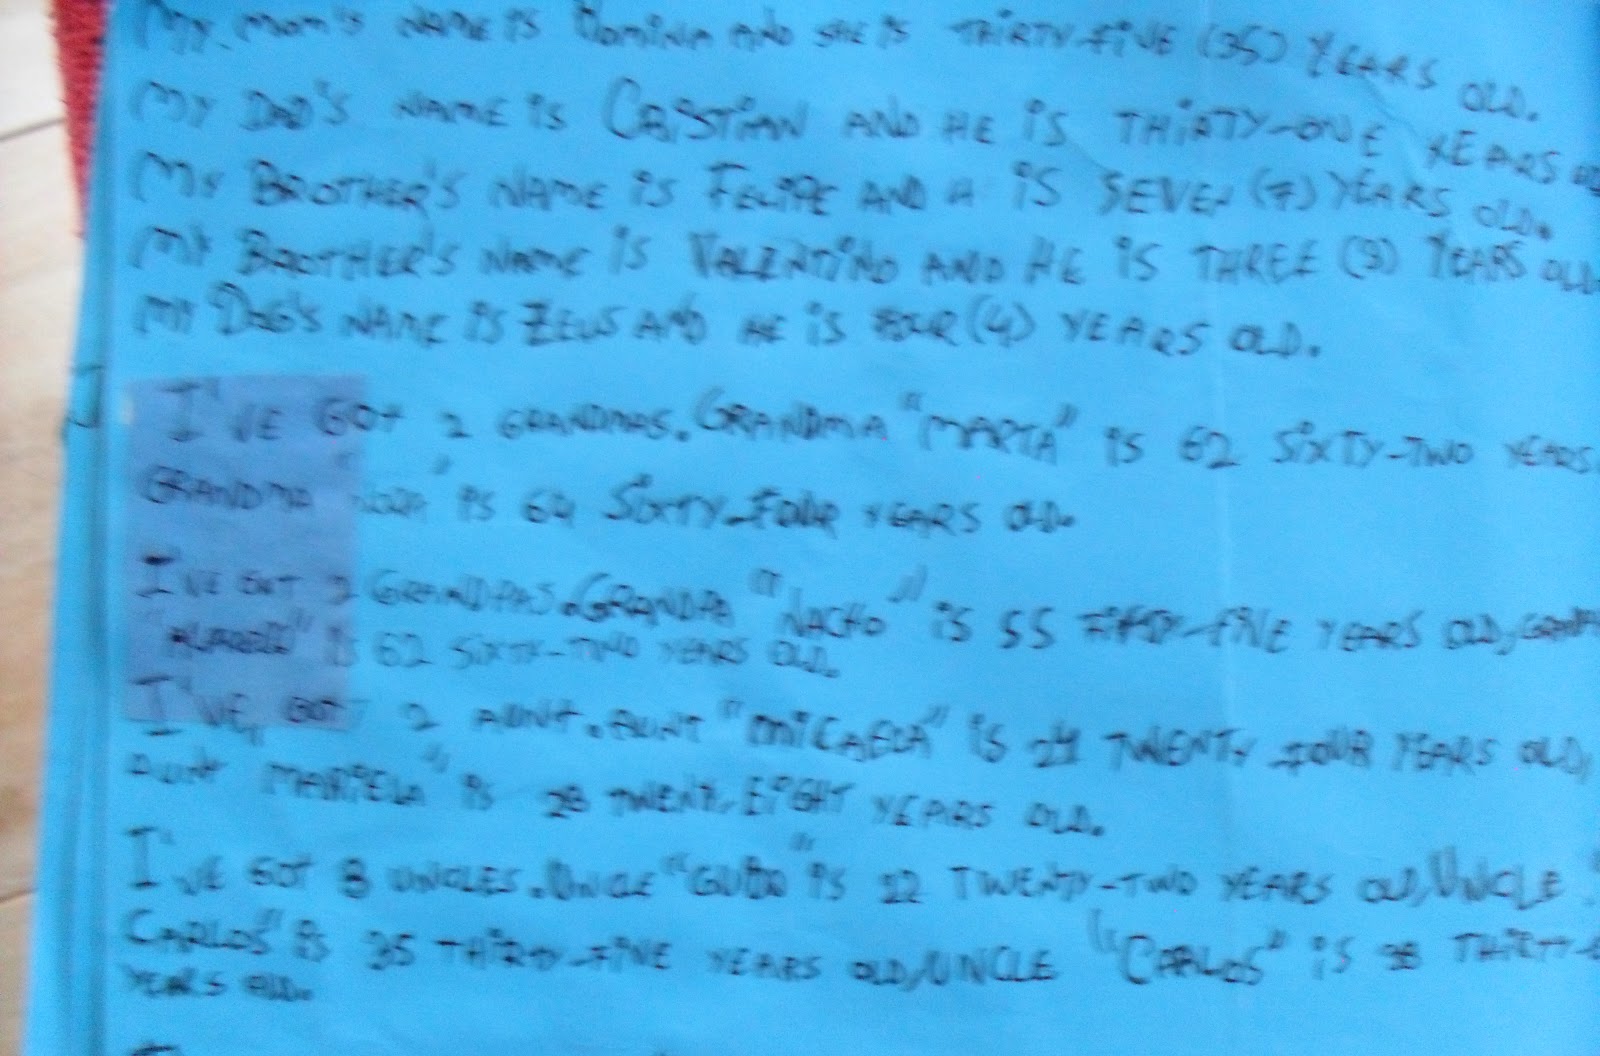 My Mom's NAME iS Romina AND SHE iS THIRTY-FIVE (35) YEARS OLD.
MY DAD'S NAME iS CRiSTIAN AND HE iS THIRTY-ONE YEARS
MY BROTHER'S NAME iS FELIPE AND H iS SEVEN (7) YEARS OLD.
MY BROTHER'S NAME iS VALENTINO AND HE iS THREE (3) YEARS OLD
MY DOG'S NAME iS ZEUS AND HE iS FOUR (4) YEARS OLD.
I'VE GOT 2 GRANDMAS. GRANDMA "MARTA" iS 62 SIXTY-TWO YEARS
GRANDMA "NORA" iS 64 SIXTY-FOUR YEARS OLD.
I'VE GOT 2 GRANDPAS. GRANDPA "NACHO" iS 55 FIFTY-FIVE YEARS OLD,
iS 62 SIXTY-TWO YEARS OLD.
I'VE GOT 2 AUNT. AUNT "MiCAELA" iS 24 TWENTY FOUR YEARS OLD,
AUNT MARIELA" iS 28 TWENTY EIGHT YEARS OLD.
I'VE GOT 3 UNCLES. UNCLE "GUIDO" iS 22 TWENTY-TWO YEARS OLD, UNCLE "
CARLOS" iS 35 THIRTY-FIVE YEARS OLD, UNCLE "CARLOS" iS 38 THIRTY-
YEARS OLD.